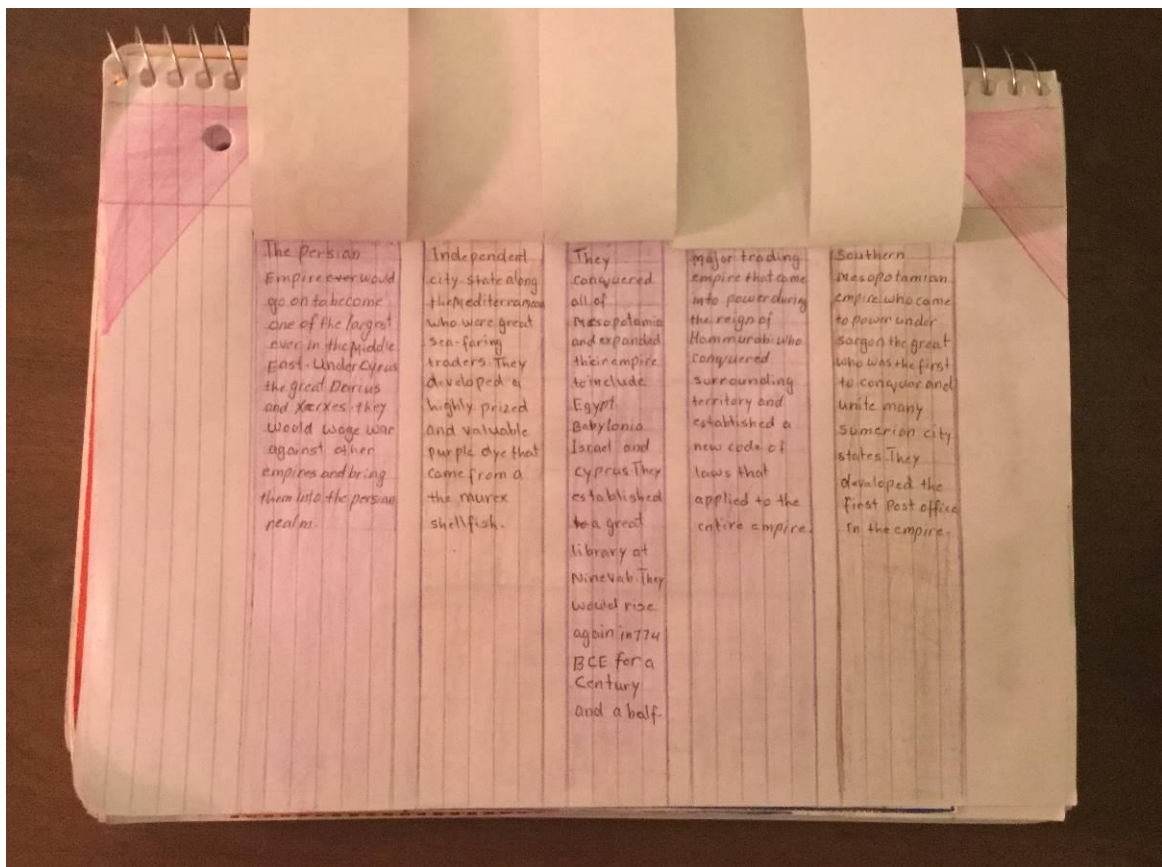 The Persian
Empire ever would
go on to become
one of the largest
ever in the Middle
East. Under Cyrus
the great Dairius
and Xerxes they
would wage war
against other
empires and bring
them into the persian
realm.
Independent
city-state along
the Mediterranean
who were great
sea-faring
traders. They
developed a
highly prized
and valuable
purple dye that
came from a
the murex
shellfish.
They
conquered
all of
Mesopotamia
and expanded
their empire
to include
Egypt
Babylonia
Israel and
cyprus They
established
to a great
library at
Ninevah. They
would rise
again in 774
BCE for a
Century
and a half.
major trading
empire that came
into power during
the reign of
Hammurabi who
conquered
surrounding
territory and
established a
new code of
laws that
applied to the
entire empire.
Southern
Mesopotamian
empire who came
to power under
sargon the great
who was the first
to conquor and
unite many
sumerian city
states. They
developed the
first Post office
in the empire.